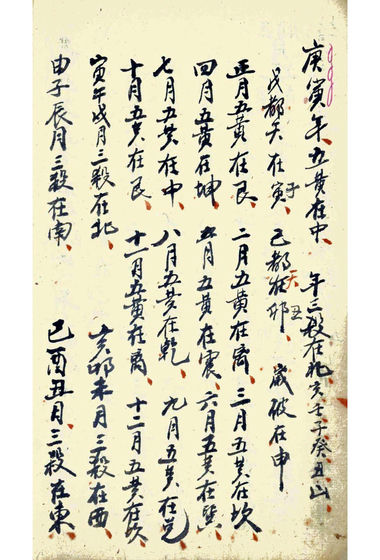 庚寅年五黄在中 年三殺在北亥壬子癸丑山
戊都天在寅子 己都天在卯丑 歲破在申
正月五黄在艮 二月五黄在离 三月五黄在坎
四月五黄在坤 五月五黄在震 六月五黄在巽
七月五黄在中 八月五黄在乾 九月五黄在兑
十月五黄在艮 十一月五黄在离 十二月五黄在坎
寅午戌月三殺在北 亥卯未月三殺在西
申子辰月三殺在南 巳酉丑月三殺在東